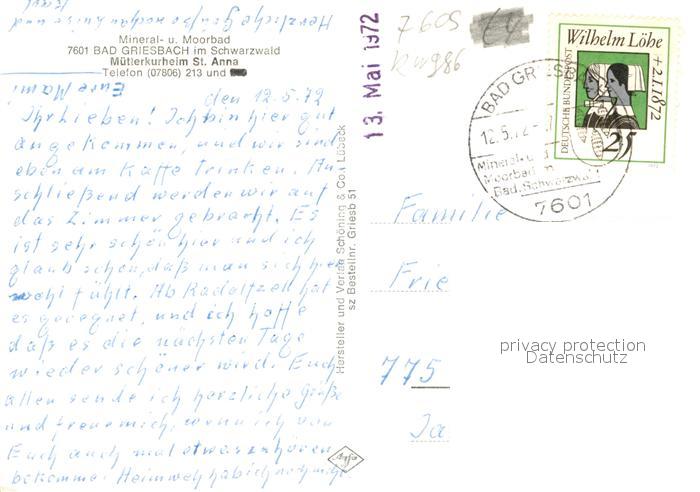 Mineral- u. Moorbad
7601 BAD GRIESBACH im Schwarzwald
Mütterkurheim St. Anna
Telefon (07806) 213 und
den 12.5.72
Ihr Lieben! Ich bin hier gut
angekommen, und wir sind
eben am Kaffe trinken. An
schließend werden wir auf
das Zimmer gebracht. Es
ist sehr schön hier und ich
glaub schon, daß man sich hier
wohl fühlt. Ab Radolfzell hat
es geregnet, und ich hoffe
daß es die nächsten Tage
wieder schöner wird. Euch
allen sende ich herzliche Grüße
und freue mich, wenn ich von
Euch auch mal etwas zu hören
bekomme. Heimweh hab ich noch nicht
Eure Mami
Hersteller und Verlag Schöning & Co., Lübeck
sz Bestellnr. Griesb 51
Agfa
13. Mai 1972
7605
Wilhelm Löhe
+2.1.1872
DEUTSCHE BUNDESPOST
25
BAD GRIESBA
12.5.72
Mineral- und
Moorbad im
Bad. Schwarzwald
7601
Familie
Frie
775
Ja
privacy protection
Datenschutz